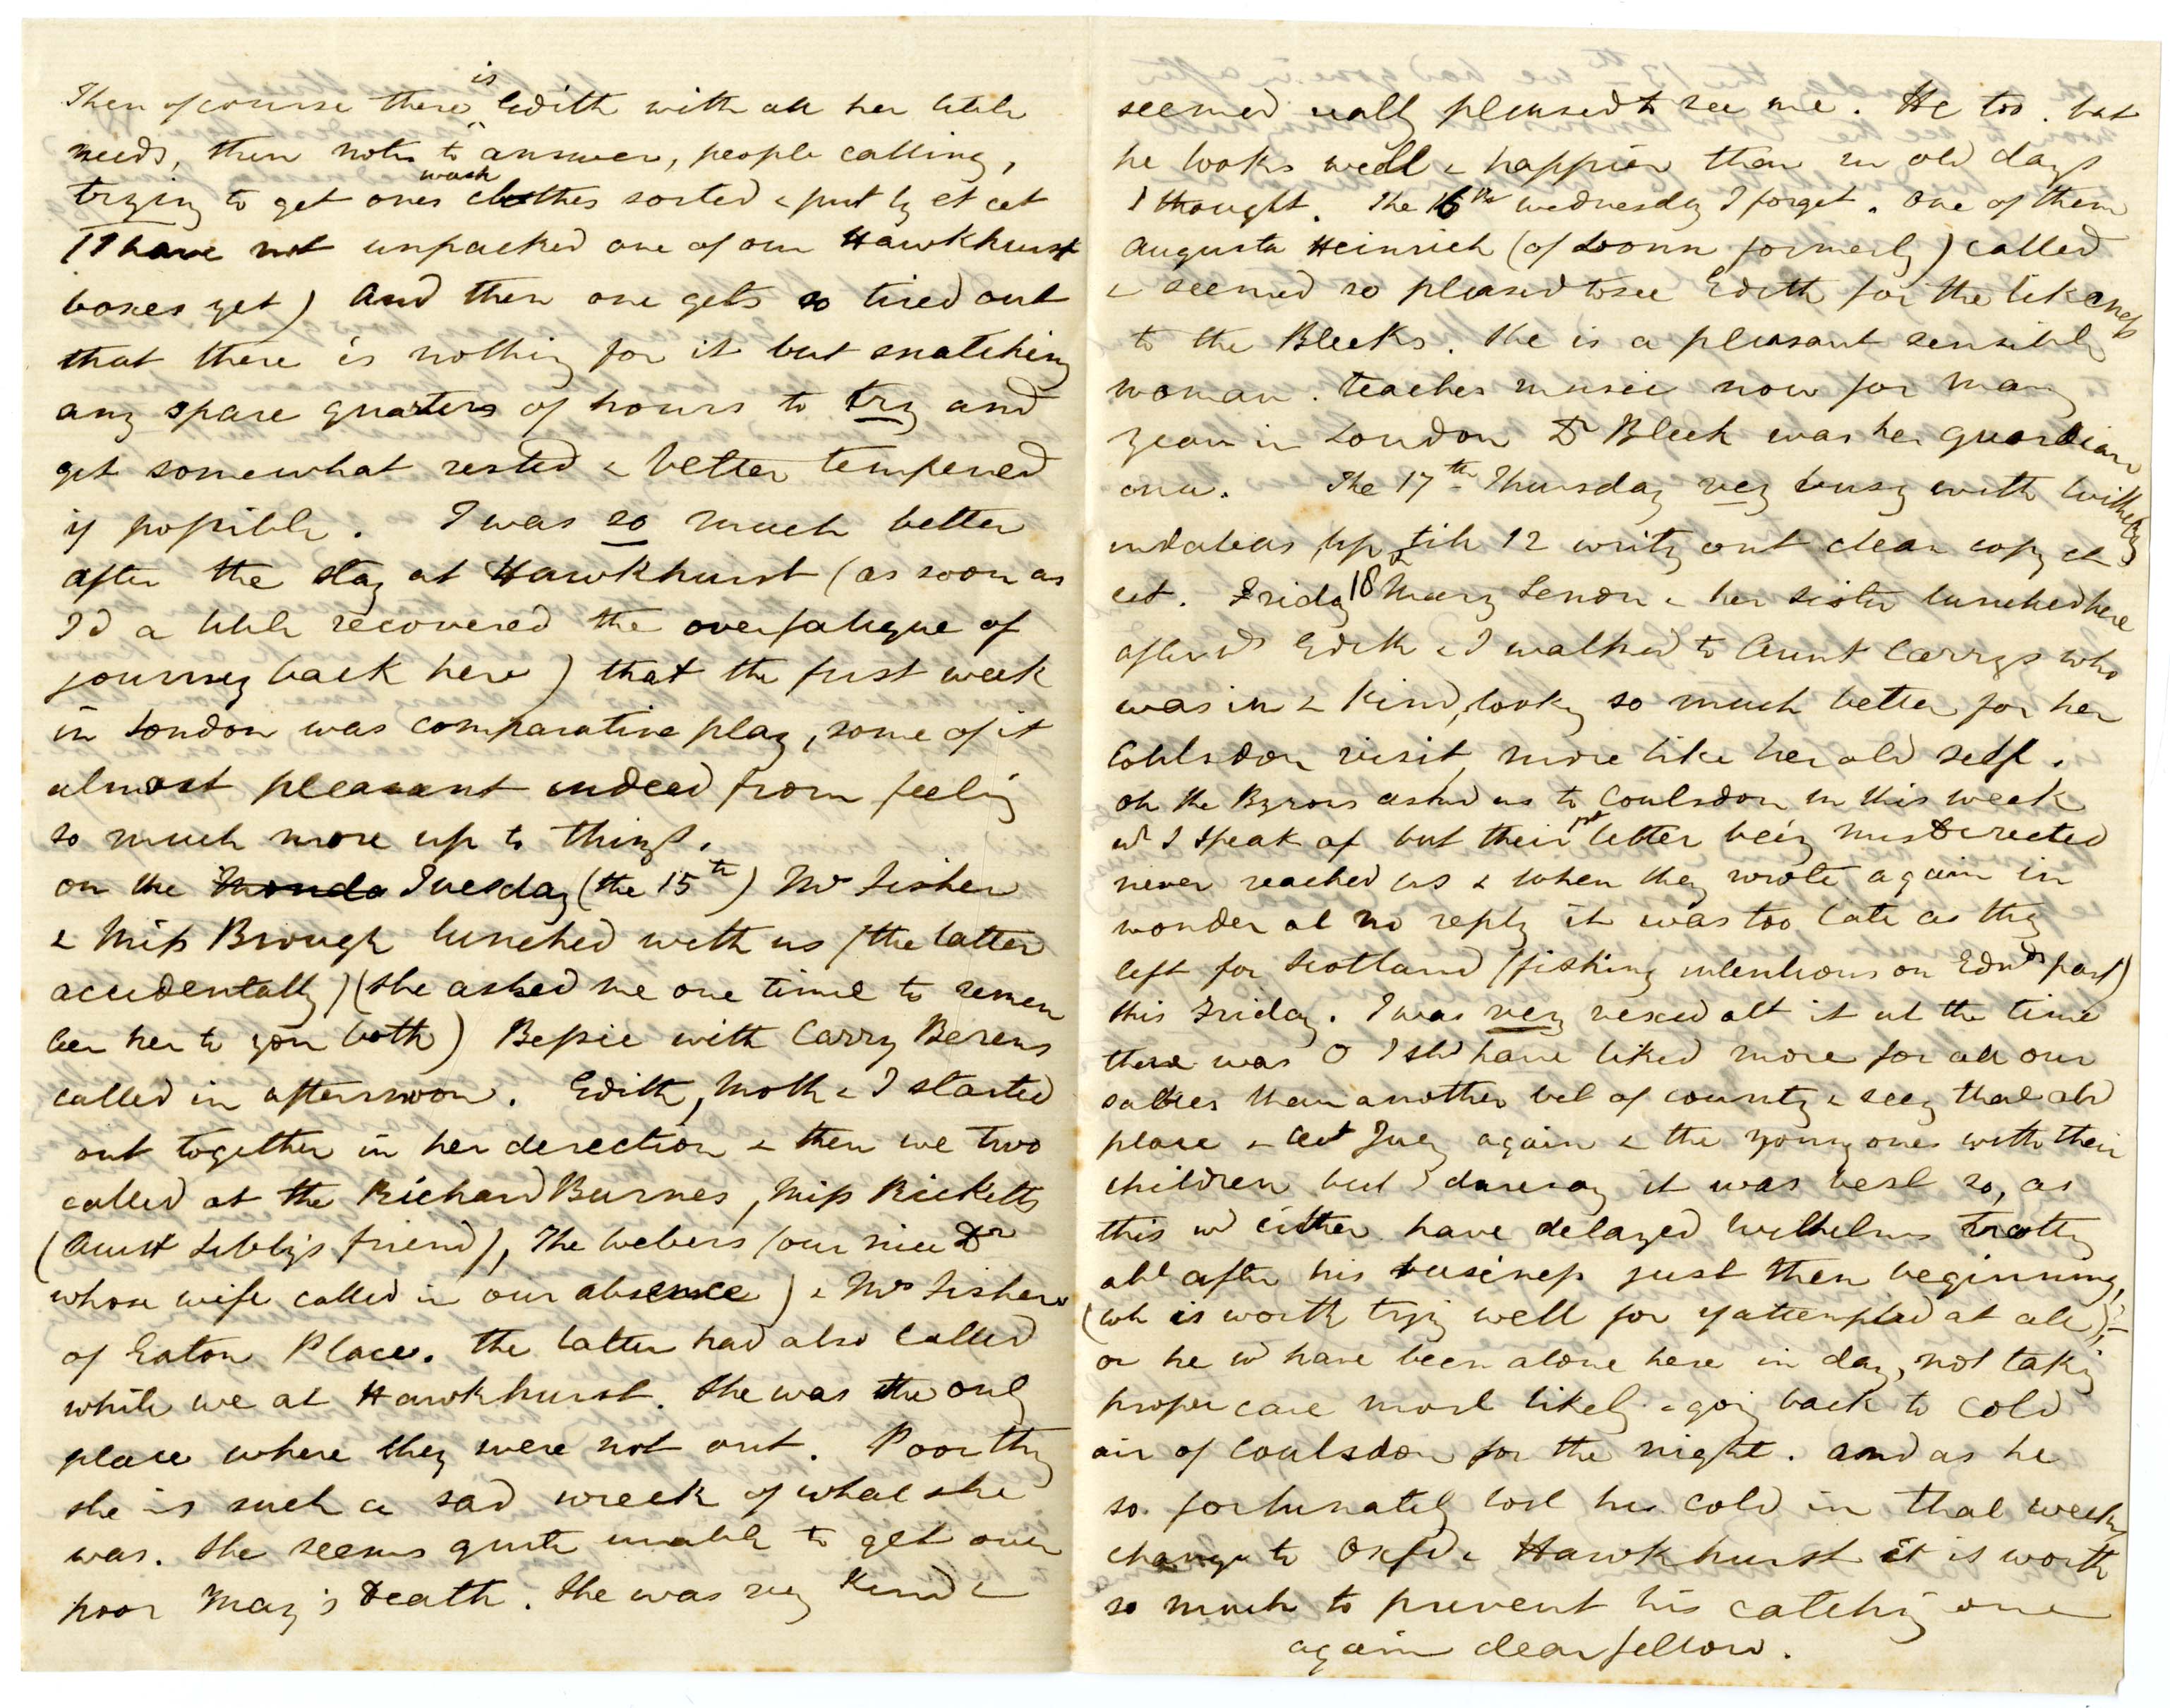 Then of course there is Edith with all her little
needs, then notes to answer, people calling,
trying to get ones wash clothes sorted & put by et cet
(I have not unpacked one of our Hawkhurst
boxes yet) And then one gets so tired out
that there is nothing for it but snatching
any spare quarters of hours to try and
get somewhat rested & better tempered
if possible. I was so much better
after the stay at Hawkhurst (as soon as
I'd a little recovered the overfatigue of
journey back here) that the first week
in London was comparative play, some of it
almost pleasant indeed from feeling
so much more up to things.
on the Monda Tuesday (the 15th) Mrs Fisher
& Miss Brough lunched with us (the latter
accidentally) (she asked me one time to remem
ber her to you both) Bessie with Carry Berens
called in afternoon. Edith, Moth & I started
out together in her derection & then we two
called at the Richard Burnes, Miss Ricketts
(Aunt Libby's friend), The Webers (our nice Dr
whose wife called in our absence) & Mrs Fishers
of Eaton Place. the latter had also called
while we at Hawkhurst. She was the only
place where they were not out. Poor thg
she is such a sad wreck of what she
was. She seems quite unable to get over
poor May's Death. She was vey Kind &
seemed really pleased to see me. He too. but
he looks well & happier than in old days
I thought. The 16th wednesday I forget. One of them
Augusta Heinrich (of Bonn formerly) called
& seemed so pleased to see Edith for the likeness
to the Bleeks. She is a pleasant sensible
woman. teaches music now for many
years in London Dr Bleek was her guardian
once. The 17th Thursday vey busy with Wilhelms
indabas (up till 12 writg out clear copy et
cet. Friday 18 Mary Lenon & her sister lunched here
afterwds Edith & I walked to Aunt Carrys who
was in & kind, lookg so much better for her
Coulsdon visit, more like her old self.
oh the Byrons asked us to Coulsdon in this week
wh I speak of but their letter being misdirected
never reached us & when they wrote again in
wonder at no reply it was too late as they
left for Scotland (fishing intentions on Edwds part)
this Friday. I was very vexed abt it at the time
there was 0 I shd have liked more for all our
sakes than another bit of country & seeg that old
place & Lucy again & the young ones with their
children but I daresay it was best so, as
this wd either have delayed Wilhelms trotting
abt after his business just then beginning,
(wh is worth tryg well for if attempted at all)
or he wd have been alone here in day, not takg
proper care most likely & goig back to cold
air of Coulsdon for the night. and as he
so fortunately lost his cold in that weeks
change to Oxfd & Hawkhurst it is worth
so much to prevent his catchig one
again dear fellow.